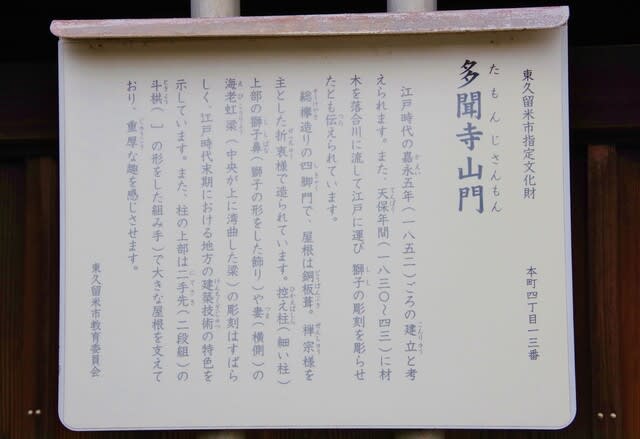 東久留米市指定文化財
たもんじさんもん
多聞寺山門
本町四丁目一三番
江戸時代の嘉永五年(一八五二)ごろの建立と考
えられます。また、天保年間(一八三〇〜四三)に材
木を落合川に流して江戸に運び 獅子の彫刻を彫らせ
たとも伝えられています。
総欅造りの四脚門で、屋根は銅板葺。禅宗様を
主とした折衷様で造られています。控え柱(細い柱)
上部の獅子鼻(獅子の形をした飾り)や妻(横側)の
海老虹梁(中央が上に湾曲した梁)の彫刻はすばら
しく、江戸時代末期における地方の建築技術の特色を
示しています。また、柱の上部は二手先(二段組)の
斗栱( )の形をした組み手)で大きな屋根を支えて
おり、重厚な趣を感じさせます。
東久留米市教育委員会